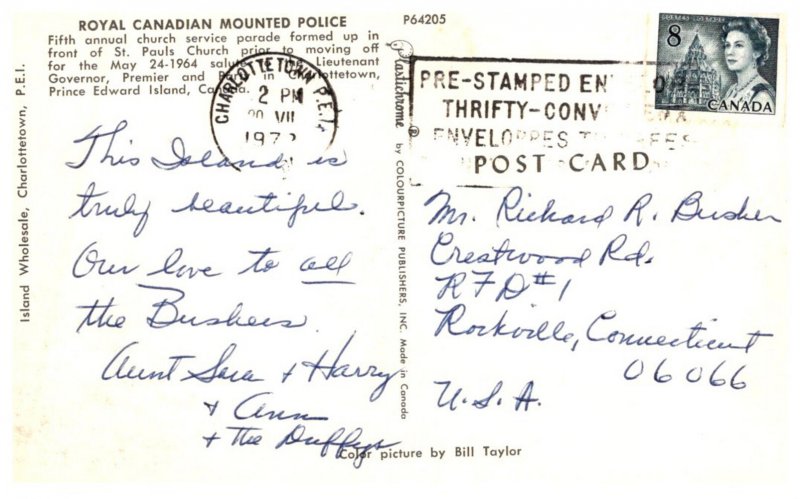 ROYAL CANADIAN MOUNTED POLICE
Fifth annual church service parade formed up in
front of St. Pauls Church prior to moving off
for the May 24-1964 Lieutenant
Governor, Premier and in Charlottetown,
Prince Edward Island, Canada.
P64205
CHARLOTTETOWN P.E.I.
2 PM
VII
197
PRE-STAMPED
THRIFTY-CONV
ENVELOPPES
8
CANADA
POST CARD
This Island is
truly beautiful.
Our love to all
the Bushers.
Aunt Sara + Harry
+ Ann
+ the Duffys
Mr. Richard R. Busher
Crestwood Rd.
RFD #1
Rockville, Connecticut
06066
U.S.A.
Island Wholesale, Charlottetown, P.E.I.
Plastichrome ® by COLOURPICTURE PUBLISHERS, INC. Made in Canada
Color picture by Bill Taylor